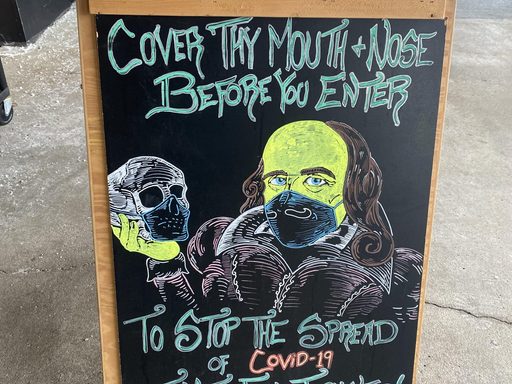 Cover Thy Mouth + Nose
Before You Enter
To Stop The Spread
of Covid-19